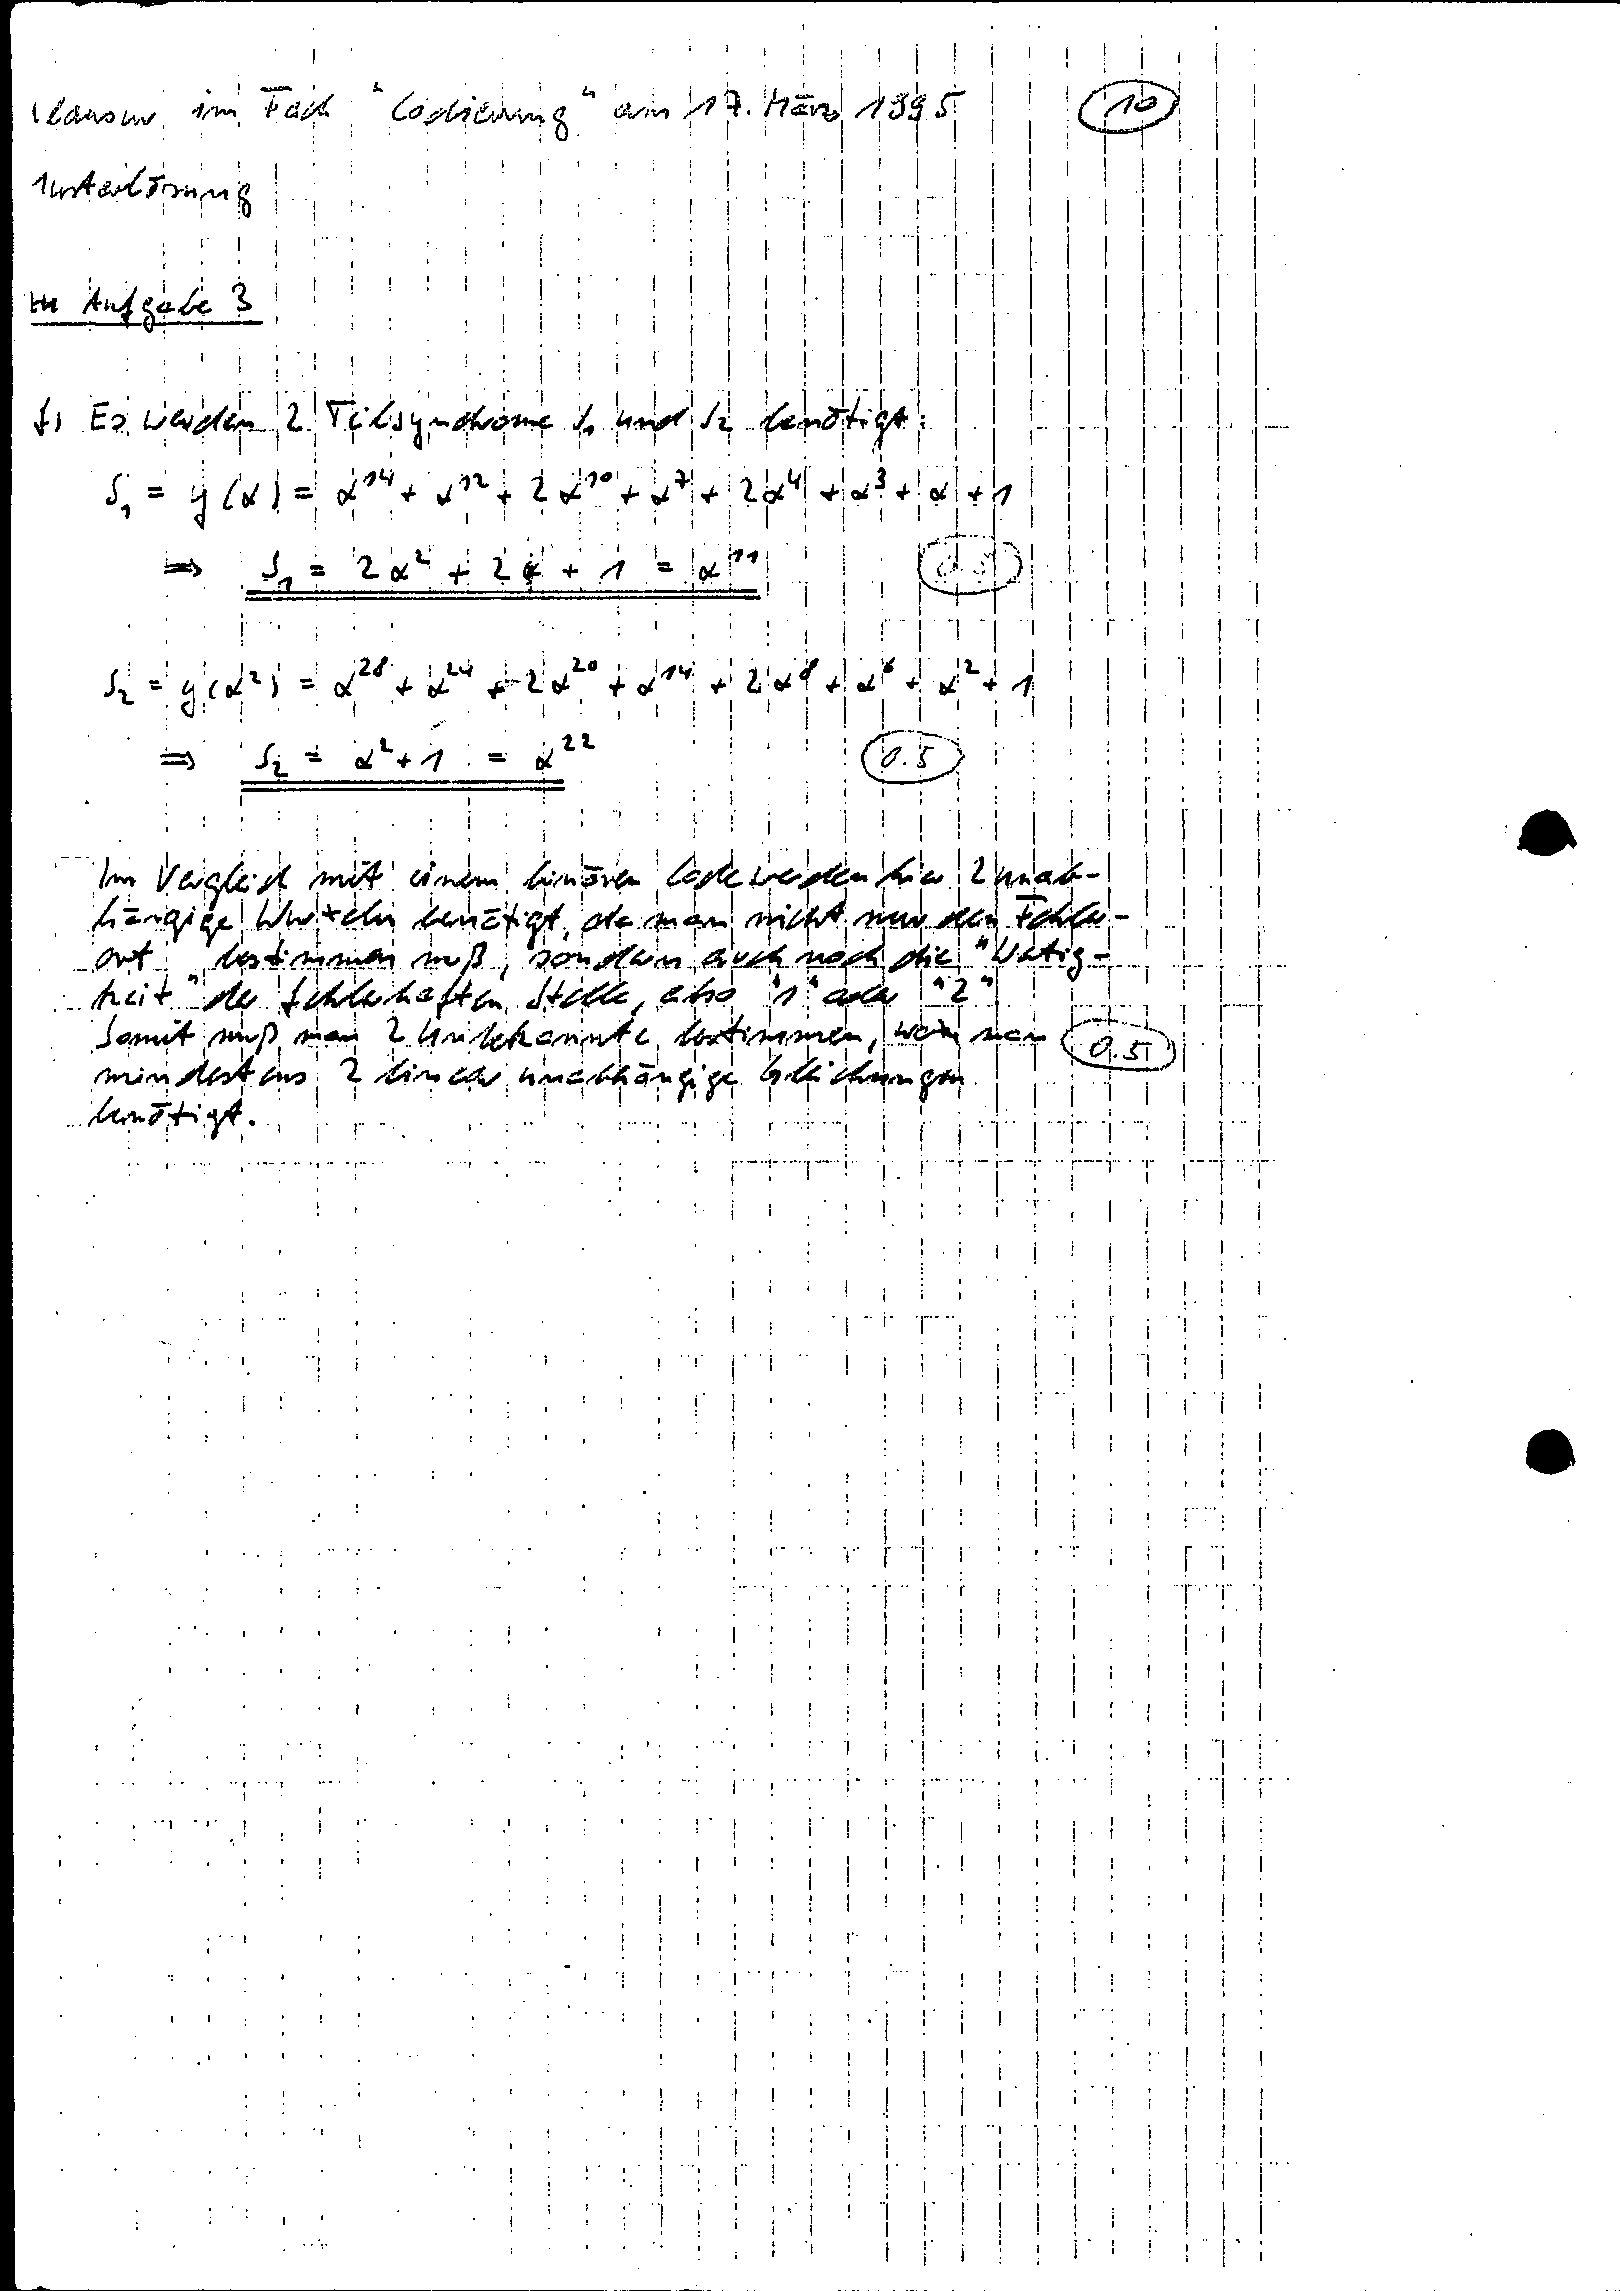 Klausur im Fach "Codierung" am 17. März 1995 10
Musterlösung
zu Aufgabe 3
f) Es werden 2 Teilsyndrome S₁ und S₂ benötigt:
S₁ = y(α) = α¹⁴ + α¹² + 2α¹⁰ + α⁷ + 2α⁴ + α³ + α + 1
⇒ S₁ = 2α² + 2α + 1 = α¹¹ 0.5
S₂ = y(α²) = α²⁸ + α²⁴ + 2α²⁰ + α¹⁴ + 2α⁸ + α⁶ + α² + 1
⇒ S₂ = α² + 1 = α²² 0.5
Im Vergleich mit einem binären Code werden hier 2 unab-
hängige Wurzeln benötigt, da man nicht nur den Fehler-
ort bestimmen muß, sondern auch noch die "Wertig-
keit" der fehlerhaften Stelle, also "1" oder "2"
Somit muß man 2 Unbekannte bestimmen, wozu man 0.5
mindestens 2 linear unabhängige Gleichungen
benötigt.